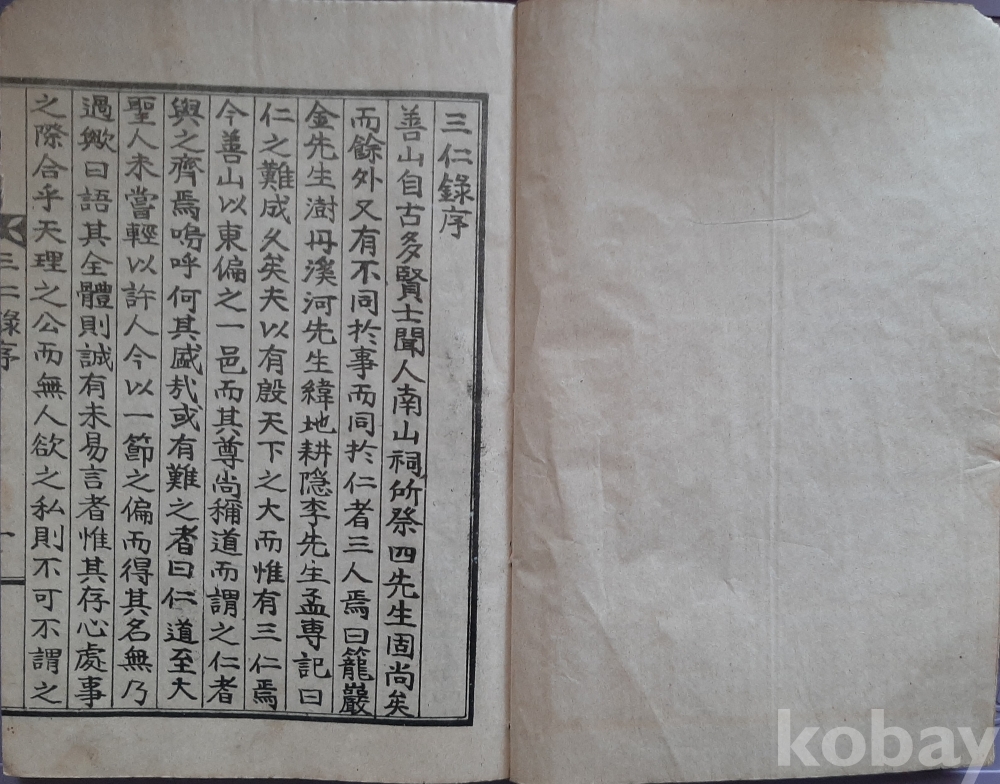 三仁錄序
善山自古多賢士聞人南山祠所祭四先生固尚矣
而餘外又有不同於事而同於仁者三人焉曰籠巖
金先生澍丹溪河先生緯地耕隐李先生孟專記曰
仁之難成久矣夫以有殷天下之大而惟有三仁焉
今善山以東偏之一邑而其尊尚稱道而謂之仁者
與之齊焉嗚呼何其盛㢤或有難之者曰仁道至大
聖人未嘗輕以許人今以一節之偏而得其名無乃
過歟曰語其全體則誠有未易言者惟其存心處事
之際合乎天理之公而無人欲之私則不可不謂之
三仁錄序
一
kobay